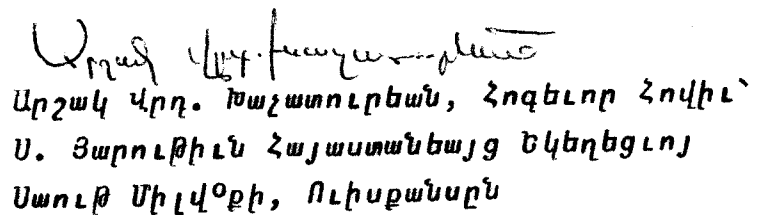 Արշակ Վրդ. Խաչատուրեան
Արշակ Վրդ. Խաչատուրեան, Հոգեւոր Հովիւ՝
Ս. Յարութիւն Հայաստանեայց Եկեղեցւոյ
Սաութ Միլվօքի, Ուիսքանսըն